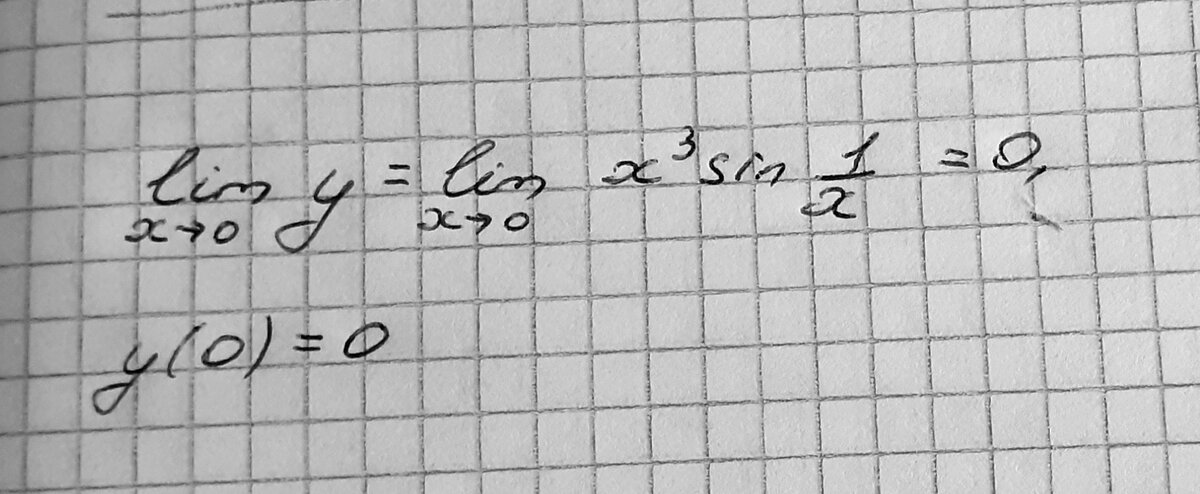 lim x→0 y = lim x→0 x³ sin 1/x = 0,
y(0) = 0